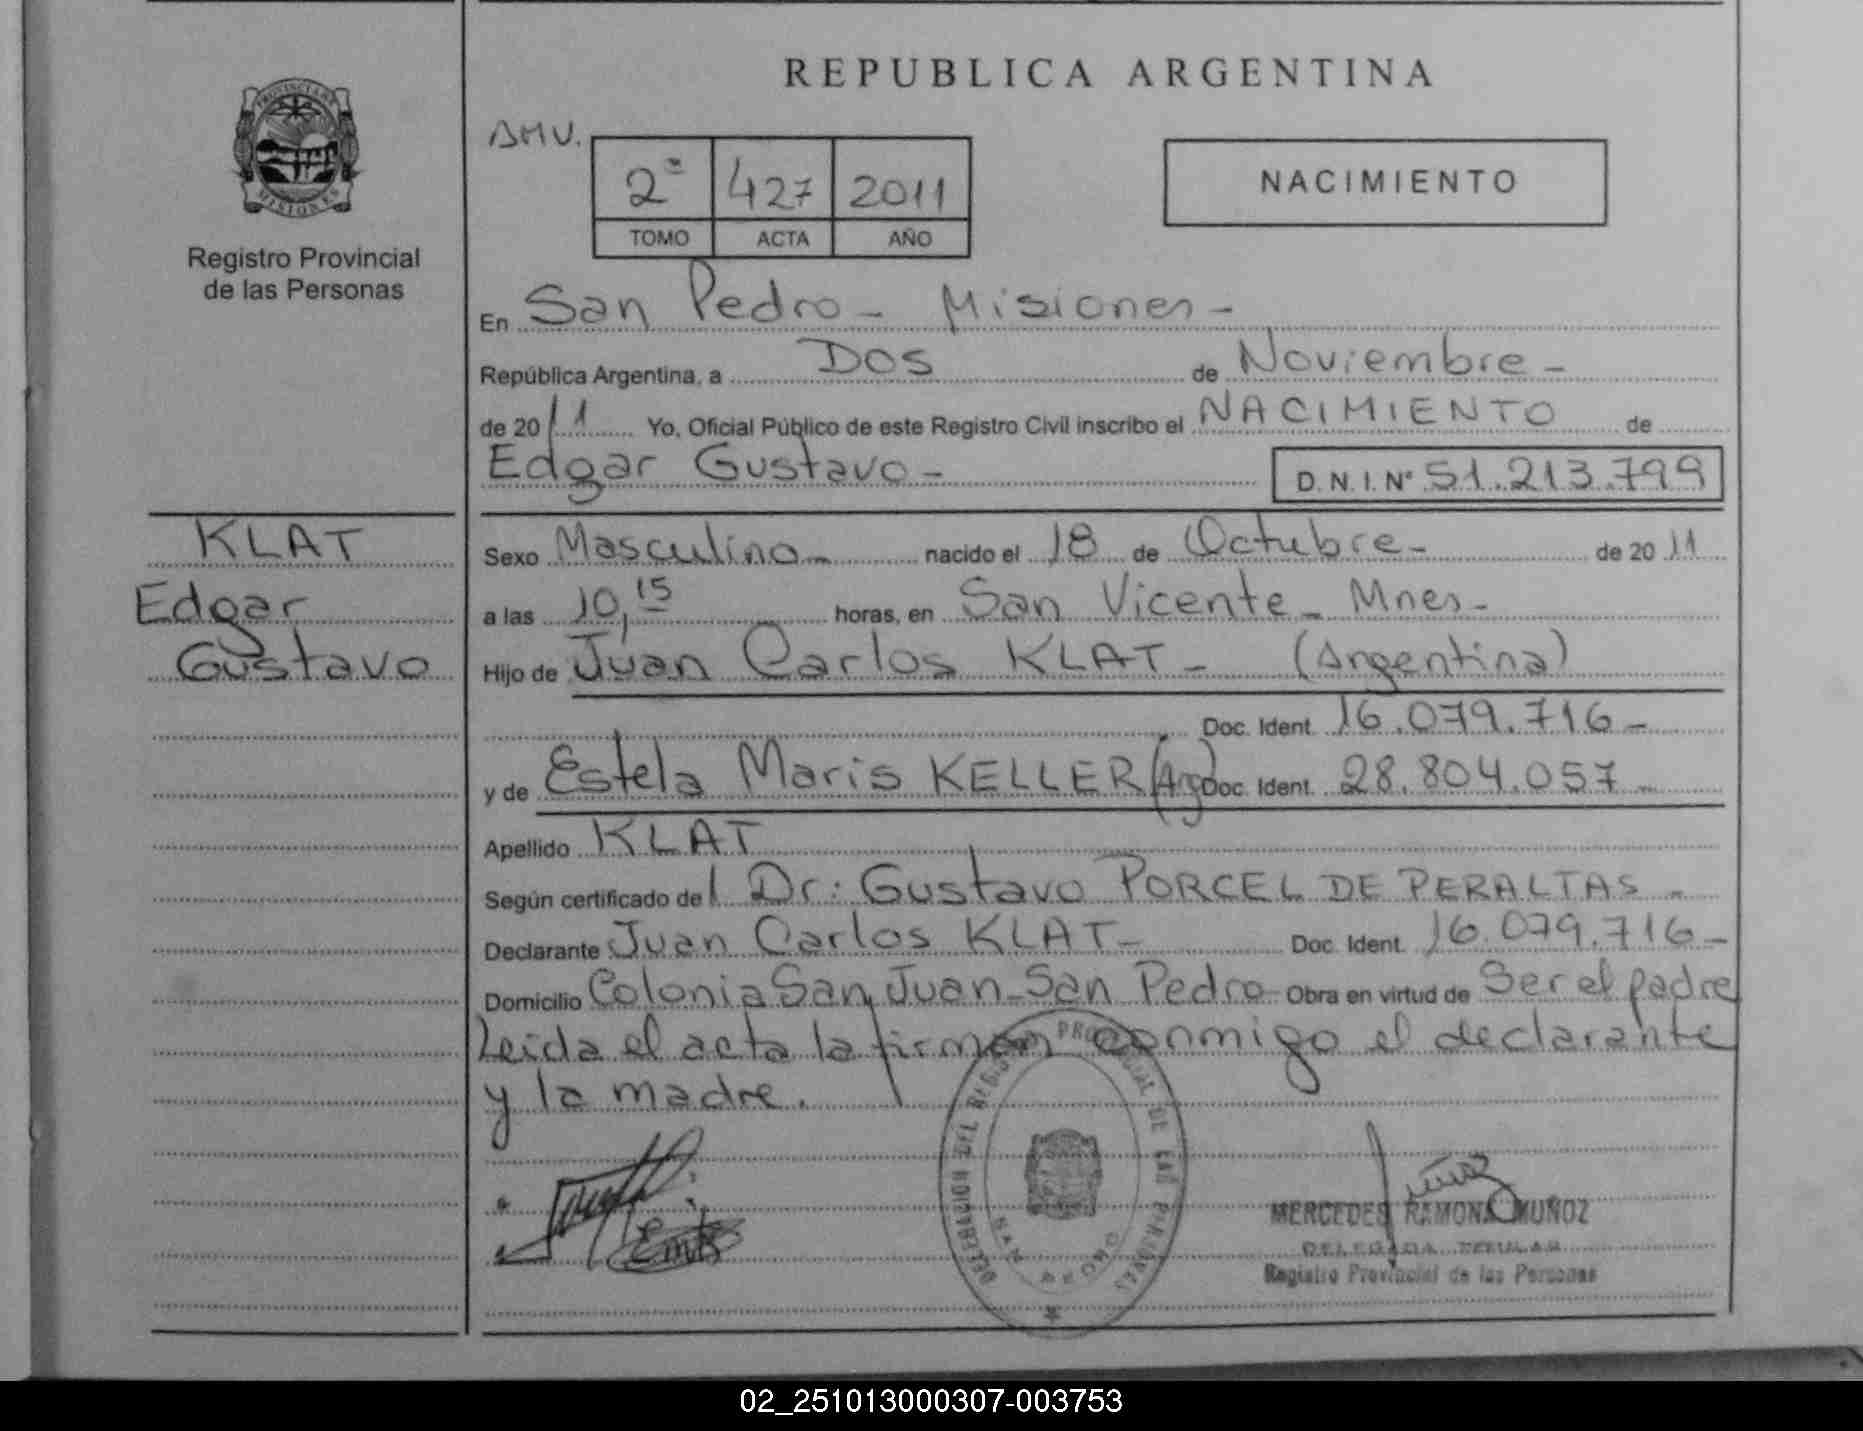 REPUBLICA ARGENTINA
PROVINCIA DE
MISIONES
Registro Provincial
de las Personas
AMV.
2º 427 2011
TOMO ACTA AÑO
NACIMIENTO
En San Pedro - Misiones -
República Argentina, a Dos de Noviembre -
de 2011 Yo, Oficial Público de este Registro Civil inscribo el NACIMIENTO de
Edgar Gustavo - D.N.I.Nº 51.213.799
KLAT
Edgar
Gustavo
Sexo Masculino - nacido el 18 de Octubre - de 2011
a las 10,15 horas, en San Vicente - Mnes -
Hijo de Juan Carlos KLAT - (Argentina)
Doc. Ident. 16.079.716 -
y de Estela Maris KELLER (Arg) Doc. Ident. 28.804.057 -
Apellido KLAT
Según certificado del Dr: Gustavo PORCEL DE PERALTAS -
Declarante Juan Carlos KLAT - Doc. Ident. 16.079.716 -
Domicilio Colonia San Juan - San Pedro - Obra en virtud de Ser el padre
Leida el acta la firman conmigo el declarante
y la madre.
DELEGACION DEL REGISTRO PROVINCIAL DE LAS PERSONAS
SAN PEDRO
MERCEDES RAMONA MUÑOZ
DELEGADA TITULAR
Registro Provincial de las Personas
02_251013000307-003753